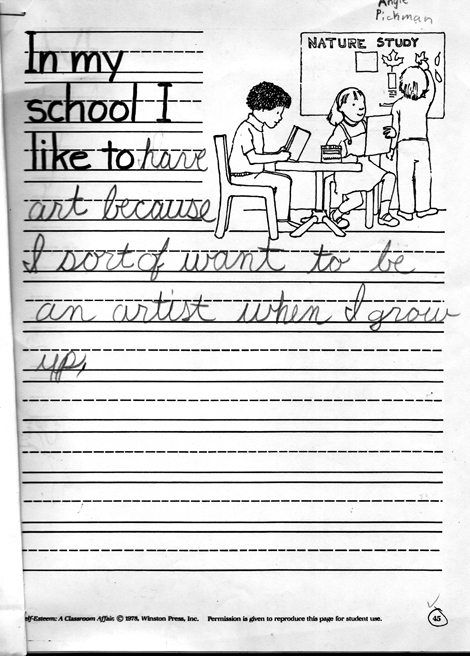 Angie
Pichman
NATURE STUDY
In my
school I
like to have
art because
I sort of want to be
an artist when I grow
up,
elf-Esteem: A Classroom Affair. © 1978, Winston Press, Inc. Permission is given to reproduce this page for student use.
45